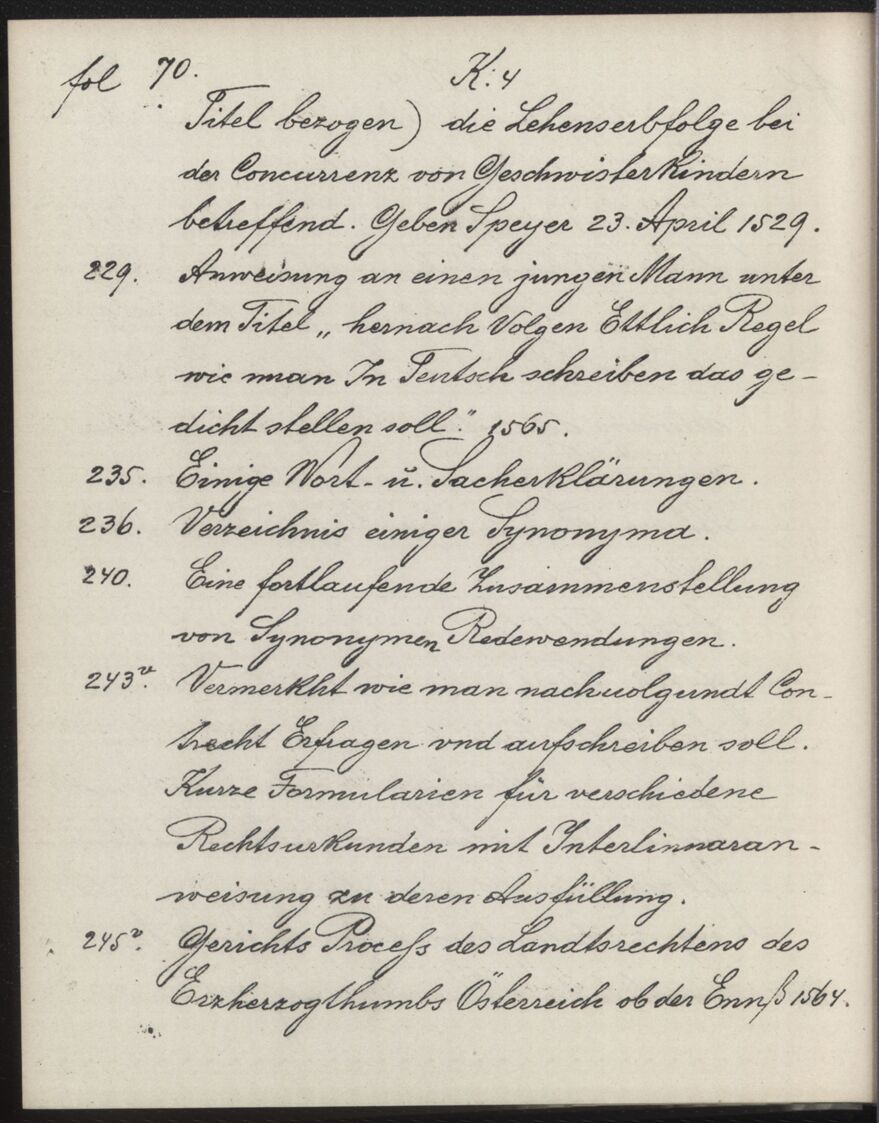 fol 70. K: 4
Titel bezogen) die Lehenserbfolge bei
der Concurrenz von Geschwisterkindern
betreffend. Geben Speyer 23. April 1529.
229. Anweisung an einen jungen Mann unter
dem Titel „hernach Volgen Ettlich Regel
wie man In Teutsch schreiben das ge-
dicht stellen soll." 1565.
235. Einige Wort- u. Sacherklärungen.
236. Verzeichnis einiger Synonyma.
240. Eine fortlaufende Zusammenstellung
von Synonymen Redewendungen.
243v. Vermerkht wie man nachuolgundt Con-
tracht Erfragen vnd aufschreiben soll.
Kurze Formularien für verschiedene
Rechtsurkunden mit Interlinnaran-
weisung zu deren Ausfüllung.
245v. Gerichts Process des Landtsrechtens des
Erzherzogthumbs Österreich ob der Ennß 1564.